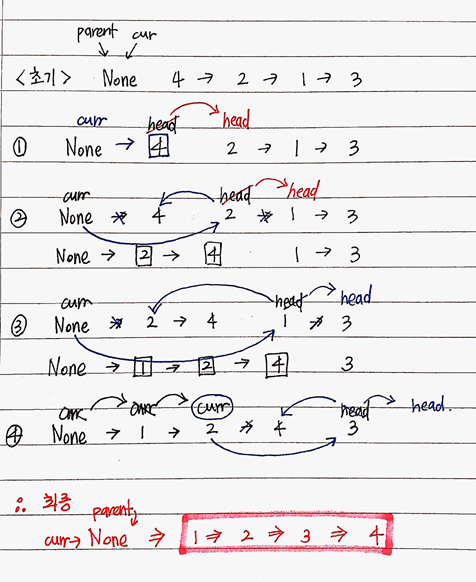 parent cur
<초기> None 4 → 2 → 1 → 3
curr head head
① None → 4 2 → 1 → 3
curr head head
② None → 4 2 → 1 → 3
None → 2 → 4 1 → 3
curr head head
③ None → 2 → 4 1 → 3
None → 1 → 2 → 4 3
curr curr curr head head.
④ None → 1 → 2 → 4 3
∴ 최종
parent
curr → None ⇒ 1 ⇒ 2 ⇒ 3 ⇒ 4